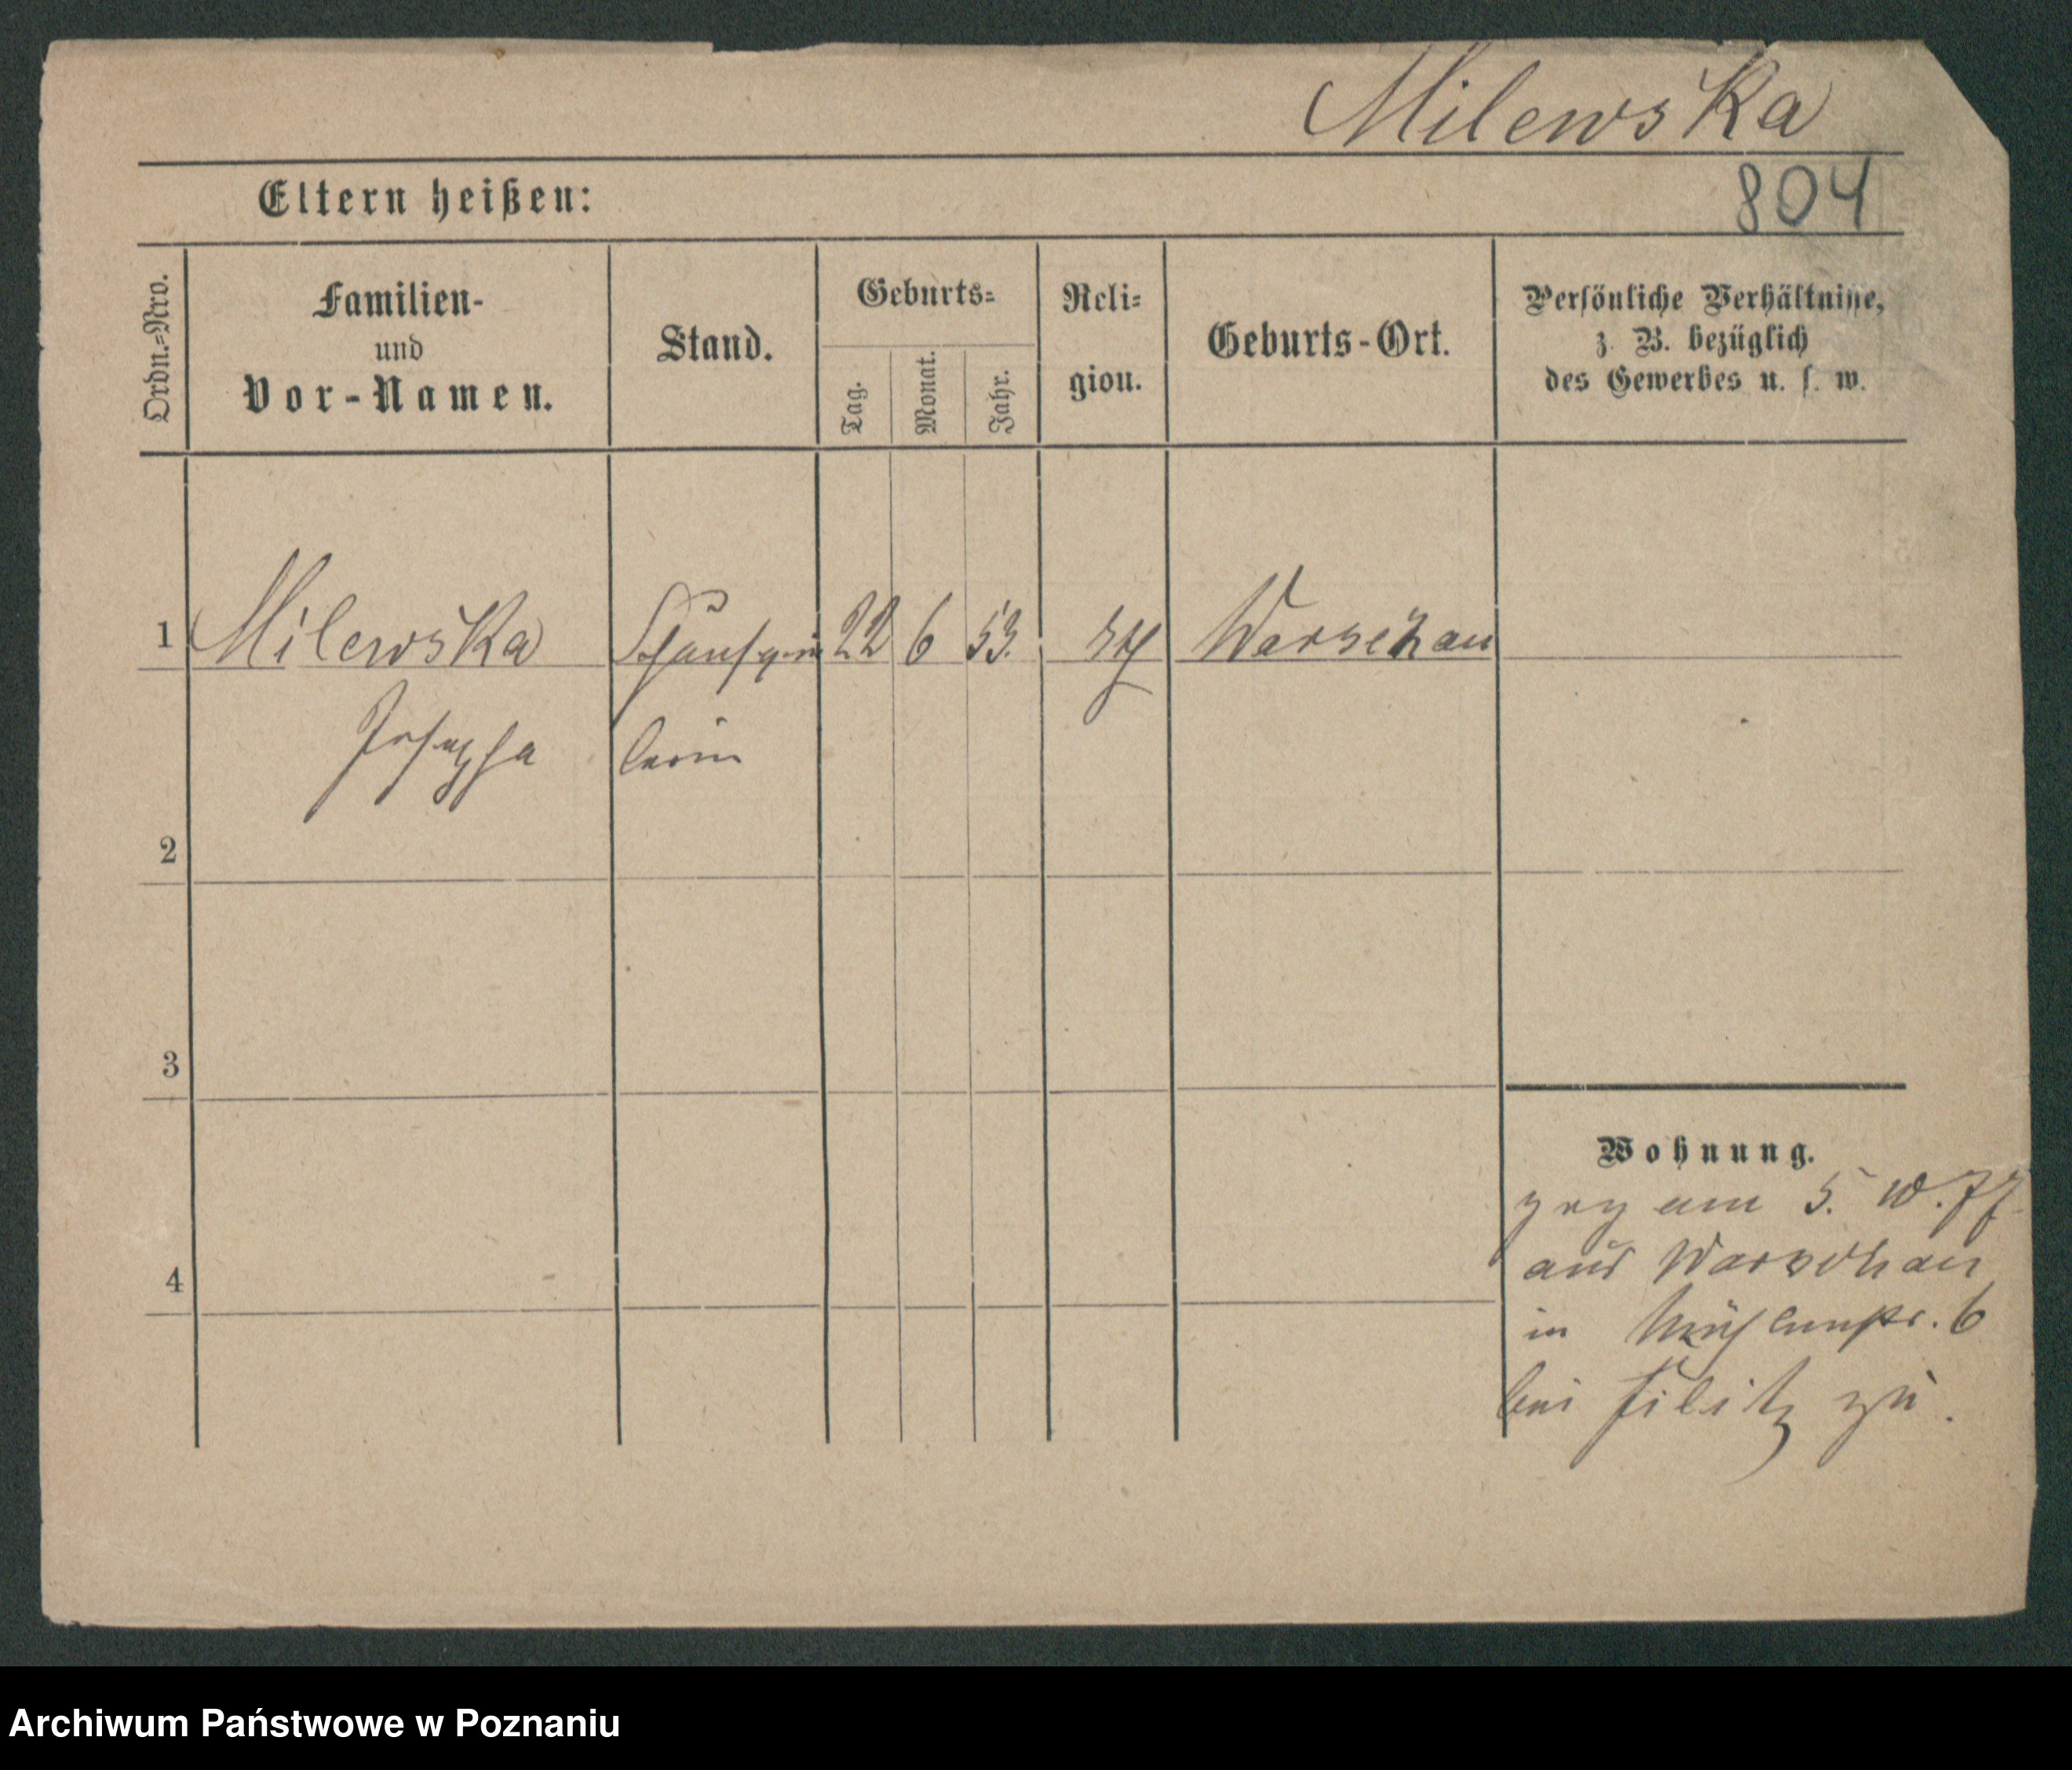 Milewska
Eltern heißen:
804
Ordn.=Nro.
Familien-
und
Vor-Namen.
Stand.
Geburts=
Tag.
Monat.
Jahr.
Reli=
gion.
Geburts-Ort.
Persönliche Verhältnisse,
z. B. bezüglich
des Gewerbes u. s. w.
1 Milewska Schauspie 22 6 53. Warschau
Josepha lerin
2
3
4
Wohnung.
am 5. 10. 77
aus Warschau
in Mühlenstr. 6
bei zu.
Archiwum Państwowe w Poznaniu